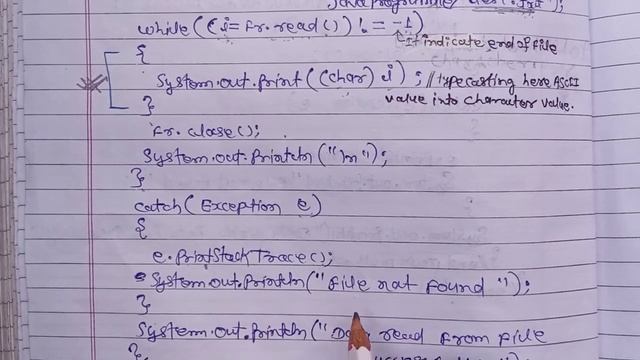 while((i=fr.read()) != -1)
It indicate end of file
{
System.out.print((char) i) ; // typecasting here ASCII
value into character value.
}
fr.close();
System.out.println("\n");
}
catch(Exception e)
{
e.printStackTrace();
System.out.println("file not found");
}
System.out.println(" read from file
}